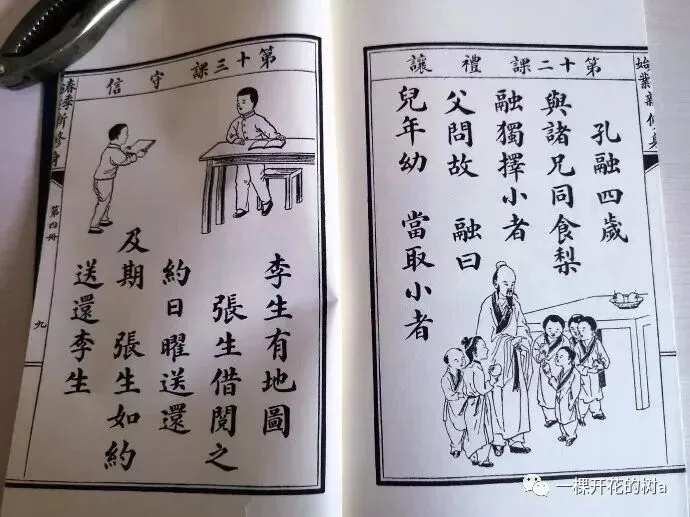 第十二課 禮讓
孔融四歲
與諸兄同食梨
融獨擇小者
父問故 融曰
兒年幼 當取小者
第十三課 守信
李生有地圖
張生借閱之
約日曜送還
及期 張生如約
送還李生
第四冊
九
一棵开花的树a